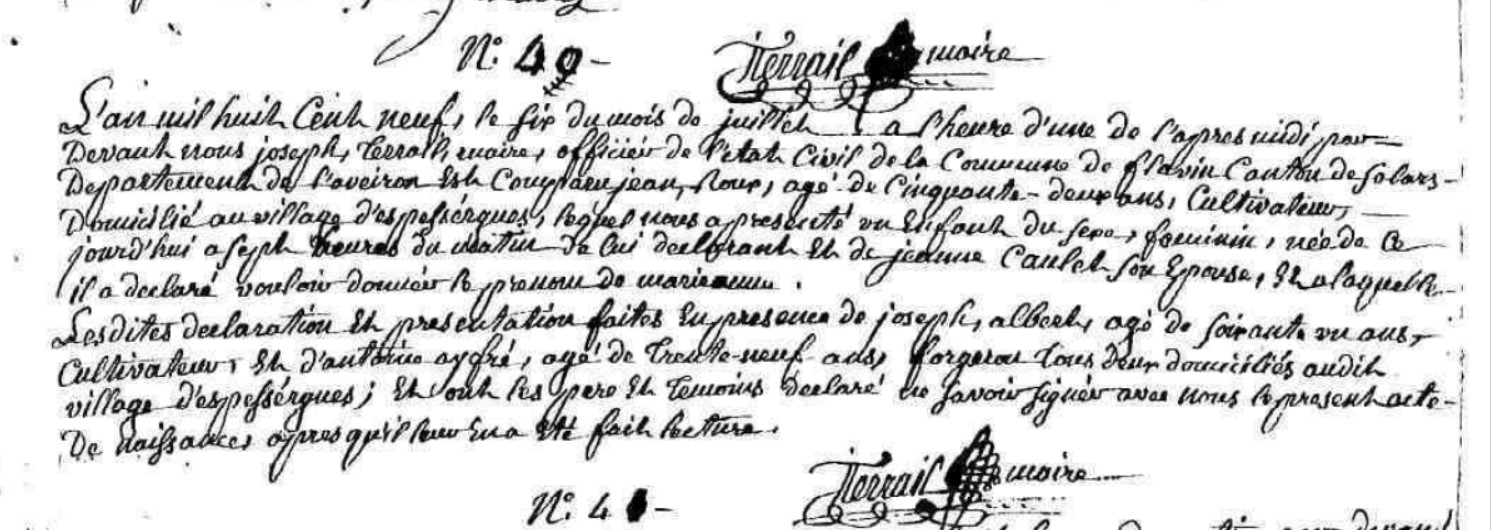 N.o 40 - Terrail maire
L'an mil huit Cent neuf, le six du mois de juillet, a l'heure d'une de l'apres midi, par
Devant nous joseph, Terrail, maire, officiér de l'état Civil de la Commune de flavin Canton de Solars-
Département de l'aveiron Est Comparu jean, Roux, agé de Cinquante-deux ans, Cultivateur,
Domicilié au village d'espessérgues, lequel nous a presenté un Enfant du sexe, feminin, née de Ce
jourd'hui a sept heures du matin de lui declarant Et de jeanne Caulet son Epouse, Et a laquelle
il a declaré vouloir donnér le prenom de marianne.
Lesdites declaration Et presentation faites En presence de joseph, albert, agé de soixante un ans,
Cultivateur, Et d'antoine ayfré, agé de Trente-neuf ans, forgeron Tous deux domiciliés audit
village d'espessérgues; Et ont les pere Et Temoins declaré ne savoir signér avec nous le present acte
De naissance, apres qu'il leur En a Eté fait lecture.
Terrail maire
N.o 41 -